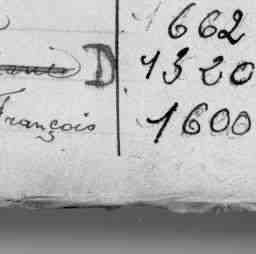 1662
D 1320
François 1600